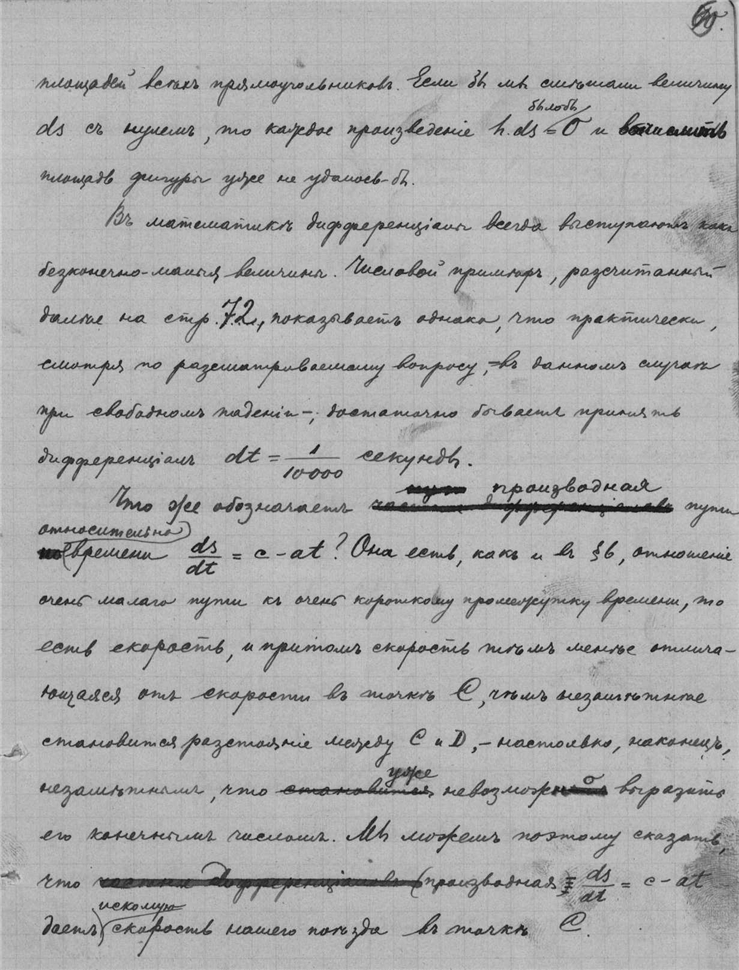 площадей всѣхъ прямоугольниковъ. Если бы мы смѣшали величину
было бы
ds съ нулемъ, то каждое произведеніе h.ds=0 и вычислить
площадь фигуры уже не удалось-бы.
Въ математикѣ дифференціалы всегда выступаютъ какъ
безконечно-малыя величины. Числовой примѣръ, разсчитанный
далѣе на стр. 72, показываетъ однако, что практически,
смотря по разсматроваемому вопросу, – въ данномъ случаѣ
при свободномъ паденіи –, достаточно бываетъ принять
дифференціалъ dt = 1/10000 секунды.
производная
Что же обозначаетъ частное дифференціаловъ пути
относительно
времени ds/dt = c – at? Она есть, какъ и въ §6, отношеніе
очень малаго пути къ очень короткому промежутку времени, то
есть скорость, и притомъ скорость тѣмъ менѣе отлича-
ющаяся отъ скорости въ точкѣ C, чѣмъ незамѣтнѣе
становится разстояніе между C и D, – настолько, наконецъ,
уже
незамѣтнымъ, что становится невозможно выразить
его конечнымъ числомъ. Мы можемъ поэтому сказать,
что частное дифференціаловъ (производная ds/dt = c – at
искомую
даетъ) скорость нашего поѣзда въ точкѣ C.